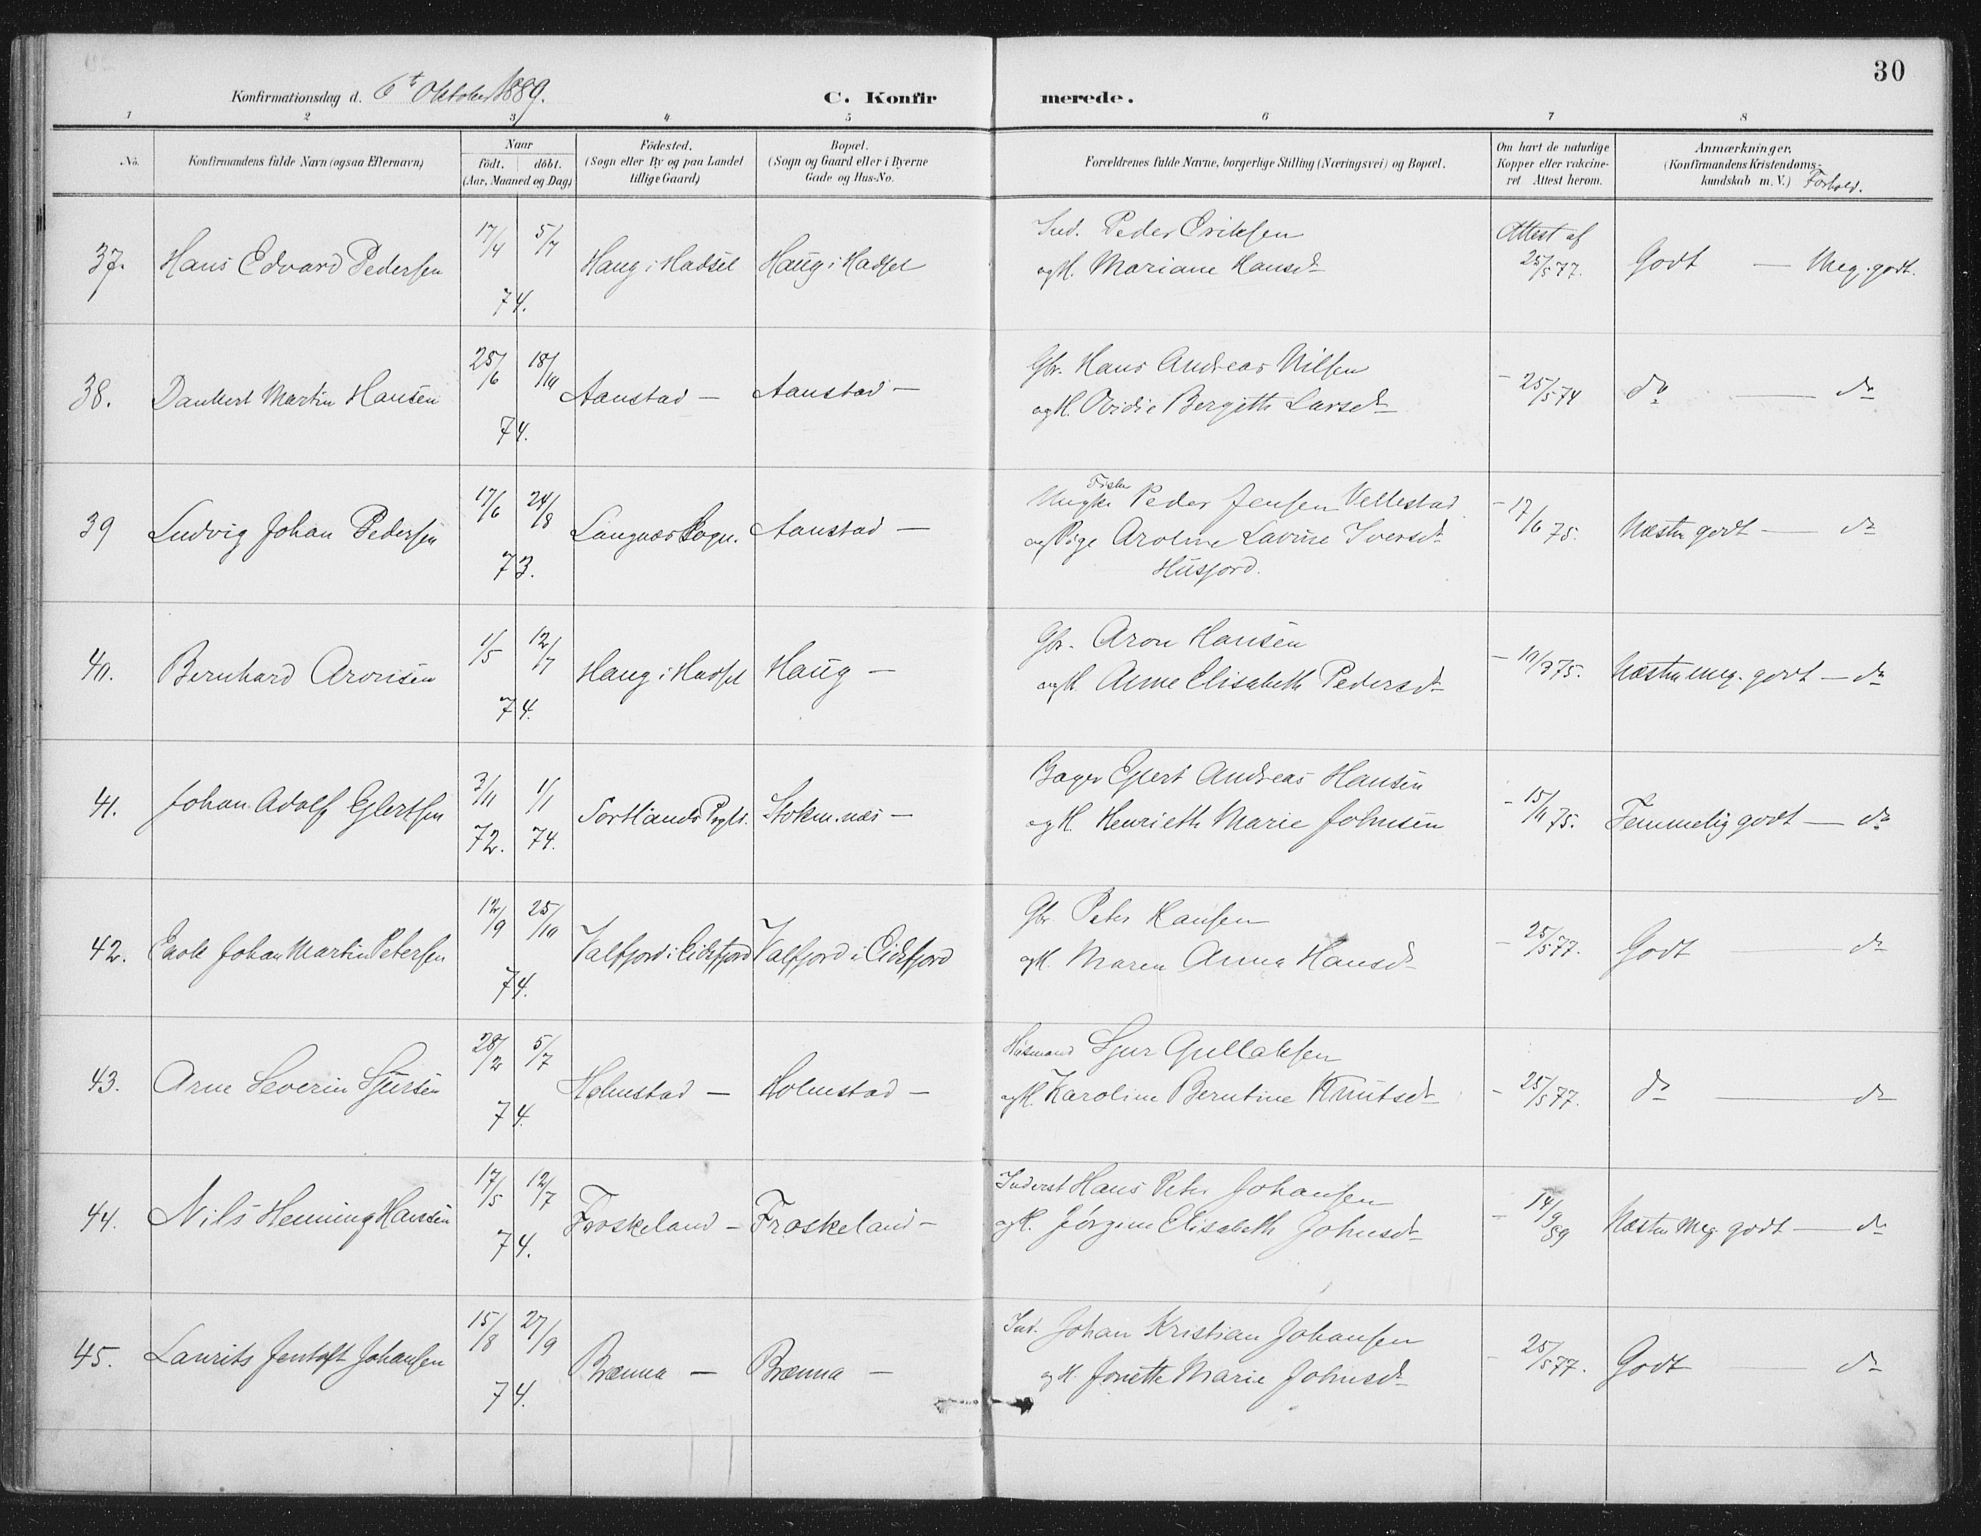 30
Konfirmationsdag d. 6t Oktober 1889.
C. Konfirmerede.
1 2 3 4 5 6 7 8
No.
Konfirmandens fulde Navn (ogsaa Efternavn)
Naar
födt. döbt.
(Aar, Maaned og Dag)
Födested.
(Sogn eller By og paa Landet
tillige Gaard)
Bopæl.
(Sogn og Gaard eller i Byerne
Gade og Hus-No.
Forældrenes fulde Navne, borgerlige Stilling (Næringsvei) og Bopæl.
Om havt de naturlige
Kopper eller vakcine-
ret Attest herom.
Anmærkninger,
(Konfirmandens Kristendoms-
kundskab m. V.) Forhold.
37. Hans Edvard Pedersen 17/4 5/7 74. Haug i Hadsel Haug i Hadsel
Ind. Peder Eriksen
og H. Mariane Hansdt
Attest af 25/5 77. Godt — Meg. godt.
38. Dankert Martin Hansen 25/6 18/10 74. Aanstad — Aanstad —
Gbr. Hans Andreas Nilsen
og H. Ovidie Bergitte Larsdt
- 25/5 74 do — do
39 Ludvig Johan Pedersen 17/6 24/8 73. Langnæs Sogn. Aanstad —
Fisker
Ungkr Peder Jensen Vellestad
og Pige Aroline Lavine Iversdt
Husfjord.
- 17/6 75. Næsten godt — do
40. Bernhard Aronsen 1/5 12/7 74. Haug i Hadsel Haug —
Gbr. Aron Hansen
og H. Anne Elisabeth Pedersdt
- 10/3 75. Næsten meg. godt — do
41. Johan Adolf Eylertsen 3/11 72. 1/1 74. Sortlands Prgld. Stokm.næs —
Bager Eylert Andreas Hansen
og H. Henriette Marie Johnsen
- 15/11 75. Temmelig godt — do
42. Enok Johan Martin Petersen 12/9 25/10 74. Valfjord i Eidsfjord Valfjord i Eidsfjord
Gbr. Peter Hansen
og H. Maren Anna Hansdt
- 25/5 77. Godt — do
43. Arne Severin Sjursen 28/2 5/7 74. Holmstad — Holmstad —
Husmand Sjur Gullaksen
og H. Karoline Berntine Knutsdt
- 25/5 77. do — do
44. Nils Henning Hansen 17/5 12/7 74. Froskeland — Froskeland —
Inderst Hans Peter Johansen
og H. Jørgine Elisabeth Johnsdt
- 14/9 89 Næsten Meg. godt — do
45. Laurits Jentoft Johansen 15/8 27/9 74. Brænna — Brænna —
Ind. Johan Kristian Johansen
og H. Jonette Marie Johnsdt
- 25/5 77. Godt — do